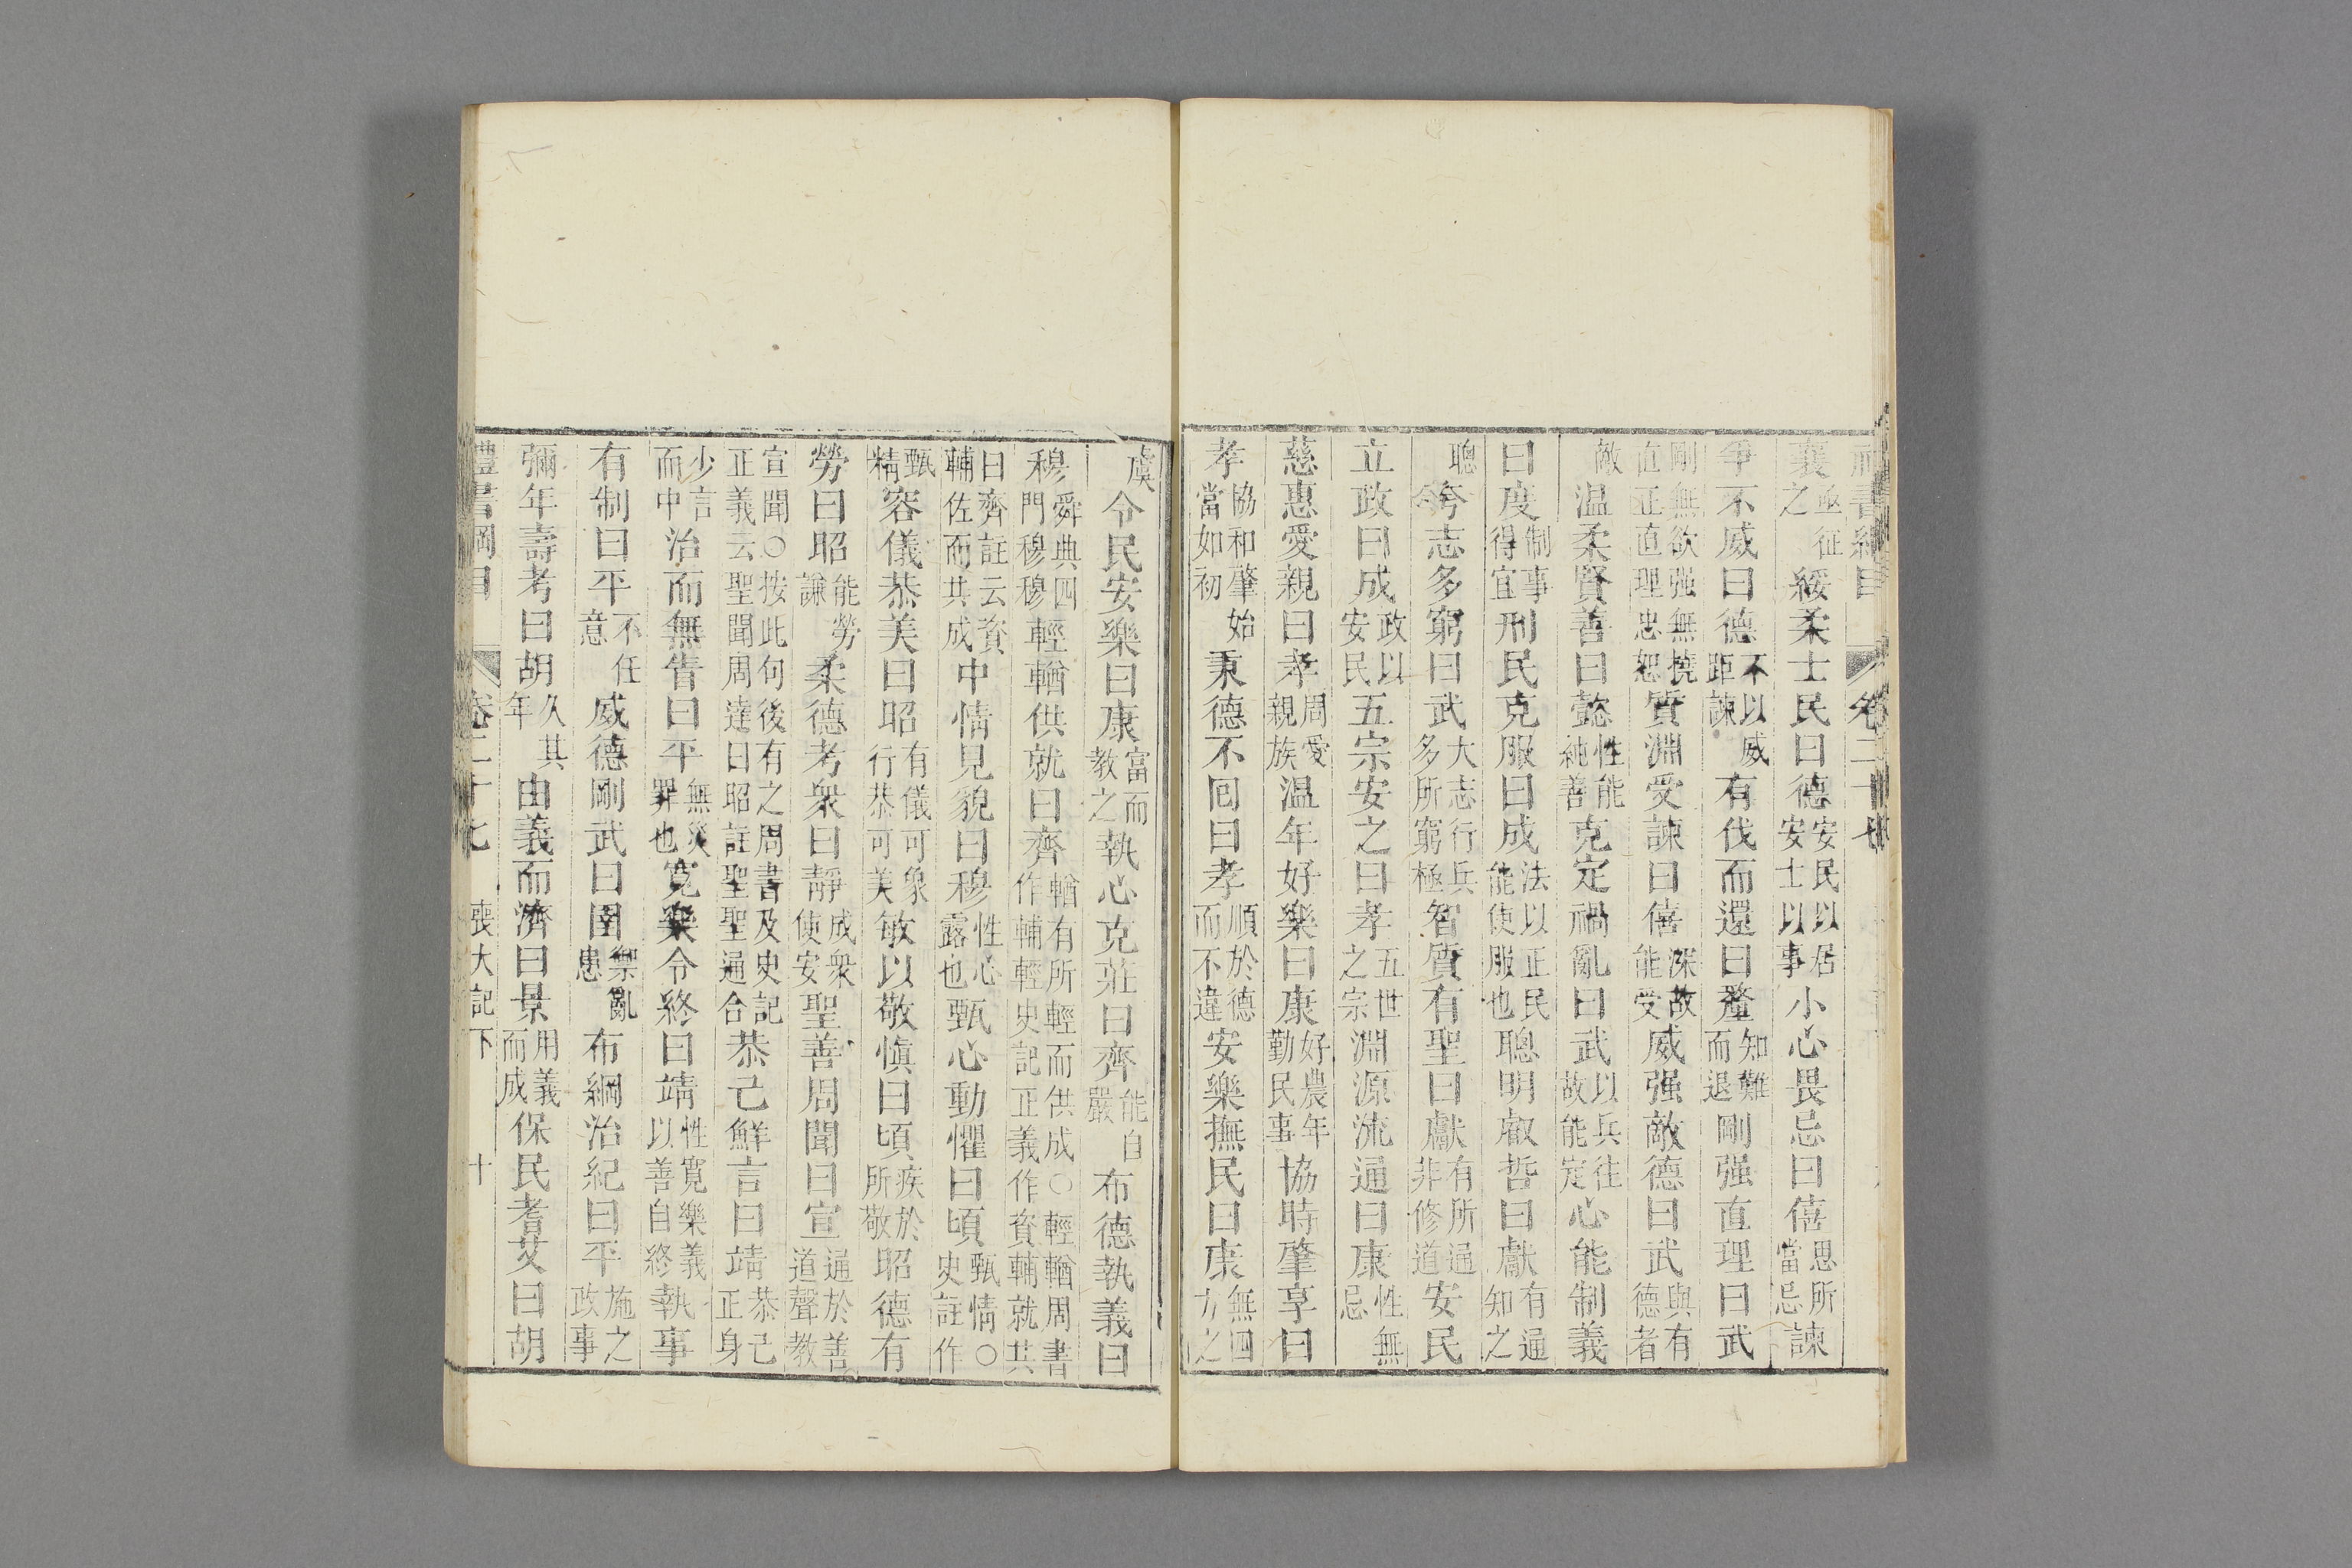 禮書綱目 卷二十七
襄亟征之綏柔士民曰德安民以居安士以事小心畏忌曰僖思所當忌諫
爭不威曰德不以威距諫有伐而還曰釐知難而退剛强直理曰武
剛無欲强無撓直正直理忠恕質淵受諫曰僖深故能受威强敵德曰武與有德者
敵温柔賢善曰懿性能純善克定禍亂曰武以兵往故能定心能制義
曰度制事得宜刑民克服曰成法以正民能使服也聰明叡哲曰獻有通知之
聰夸志多窮曰武大志行兵多所窮極智質有聖曰獻有所通非修道安民
立政曰成政以安民五宗安之曰孝五世之宗淵源流通曰康性無忌
慈惠愛親曰孝周愛親族温年好樂曰康好農年勤民事協時肇享曰
孝協和肇始當如初秉德不回曰孝順於德而不違安樂撫民曰康無四方之
虞令民安樂曰康富而教之執心克莊曰齊能自嚴布德執義曰
穆舜典四門穆穆輕輶供就曰齊輶有所輕而供成○輕輶周書作輔輕史記正義作資輔就共
曰齊註云資輔佐而共成中情見貌曰穆性心露也甄心動懼曰頃甄情○史註作
甄精容儀恭美曰昭有儀可象行恭可美敏以敬愼曰頃疾於所敬昭德有
勞曰昭能勞謙柔德考衆曰靜成衆使安聖善周聞曰宣通於善道聲教
宣聞○按此句後有之周書及史記正義云聖聞周達曰昭註聖聖通合恭己鮮言曰靖恭己正身
少言而中治而無眚曰平無災罪也寛樂令終曰靖性寛樂義以善自終執事
有制曰平不任意威德剛武曰圉禦亂患布綱治紀曰平施之政事
彌年壽考曰胡久其年由義而濟曰景用義而成保民耆艾曰胡
禮書綱目 卷二十七 喪大記下 十